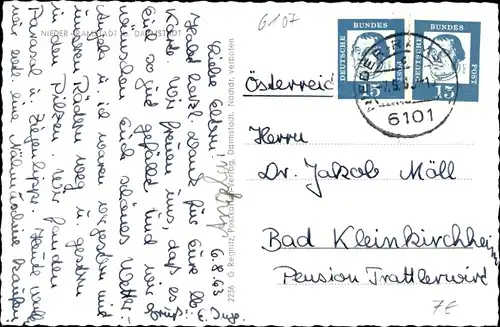 6107
NIEDER-RAMSTADT DARMSTADT
6.8.63
Liebe Eltern!
Habt herzl. Dank für Eure lb.
Karte. Wir freuen uns, daß es
Euch so gut gefällt und wir
wünschen Euch schönes Wetter.
Angela u. ich waren vorgestern mit
unseren Rädern weg u. gestern
in den Pilzen. Wir fanden
Parasol u. Ziegenlippe. Heute will
eine Nähmaschine kaufen!
Gruß
2236 G. Regnitz, Postkarten-Verlag, Darmstadt. Nachdr. verboten
DEUTSCHE BUNDES POST
15
DEUTSCHE BUNDES POST
15
6101
Österreich
Herrn
Dr. Jakob Möll
Bad Kleinkirchheim
Pension Trattlerwirt
7€